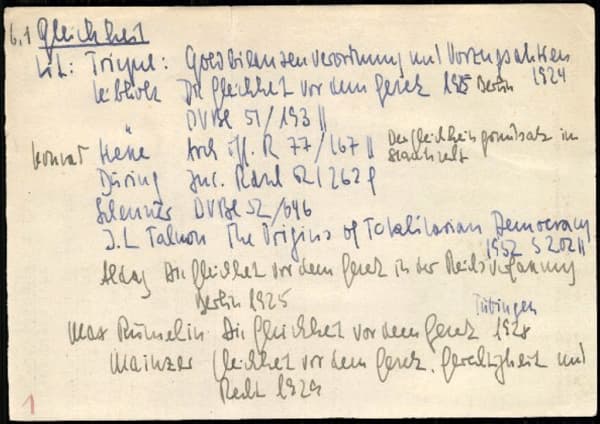 6.1 Gleichheit
Lit: Triepel: Goldbilanzenverordnung und Vorzugsaktien 1924
Leibholz Die Gleichheit vor dem Gesetz 1925 Berlin
" DVBl 51/193 ||
Konrad Hesse Arch. öff. R 77/167 || Der Gleichheitsgrundsatz im Staatsrecht
Düring Jur. Rdsch 262 f
Scheuner DVBl 52/646
J.L Talmon The Origins of Totalitarian Democracy
1952 S 202 ||
Aldag Die Gleichheit vor dem Gesetz in der Reichsverfassung
Berlin 1925
Max Rümelin Die Gleichheit vor dem Gesetz 1928 Tübingen
Mainzer Gleichheit vor dem Gesetz, Gerechtigkeit und
Recht 1929
1